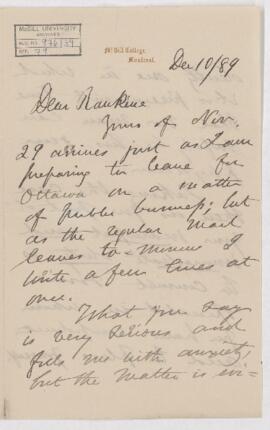 McGILL UNIVERSITY
ARCHIVES
ACC. NO. 927/39
REF. 29
McGill College,
Montreal.
Dec 10/89
Dear Rankine
Yours of Nov.
29 arrives just as I am
preparing to leave for
Ottawa on a matter
of public business; but
as the regular mail
leaves to-morrow I
write a few lines at
once.
What you say
is very serious and
fills me with anxiety,
but the matter is evi-